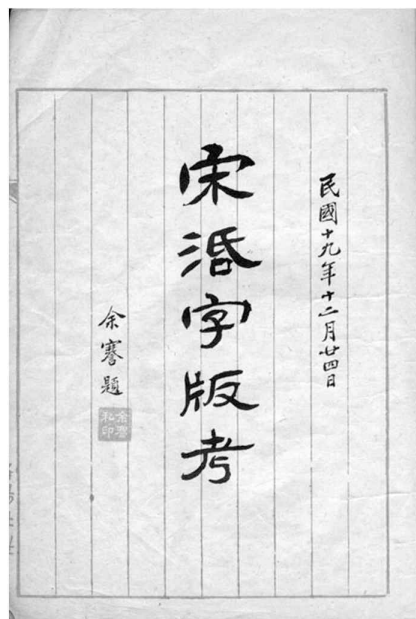 民國十九年十二月廿四日
宋活字版考
余謇題
余謇
私印